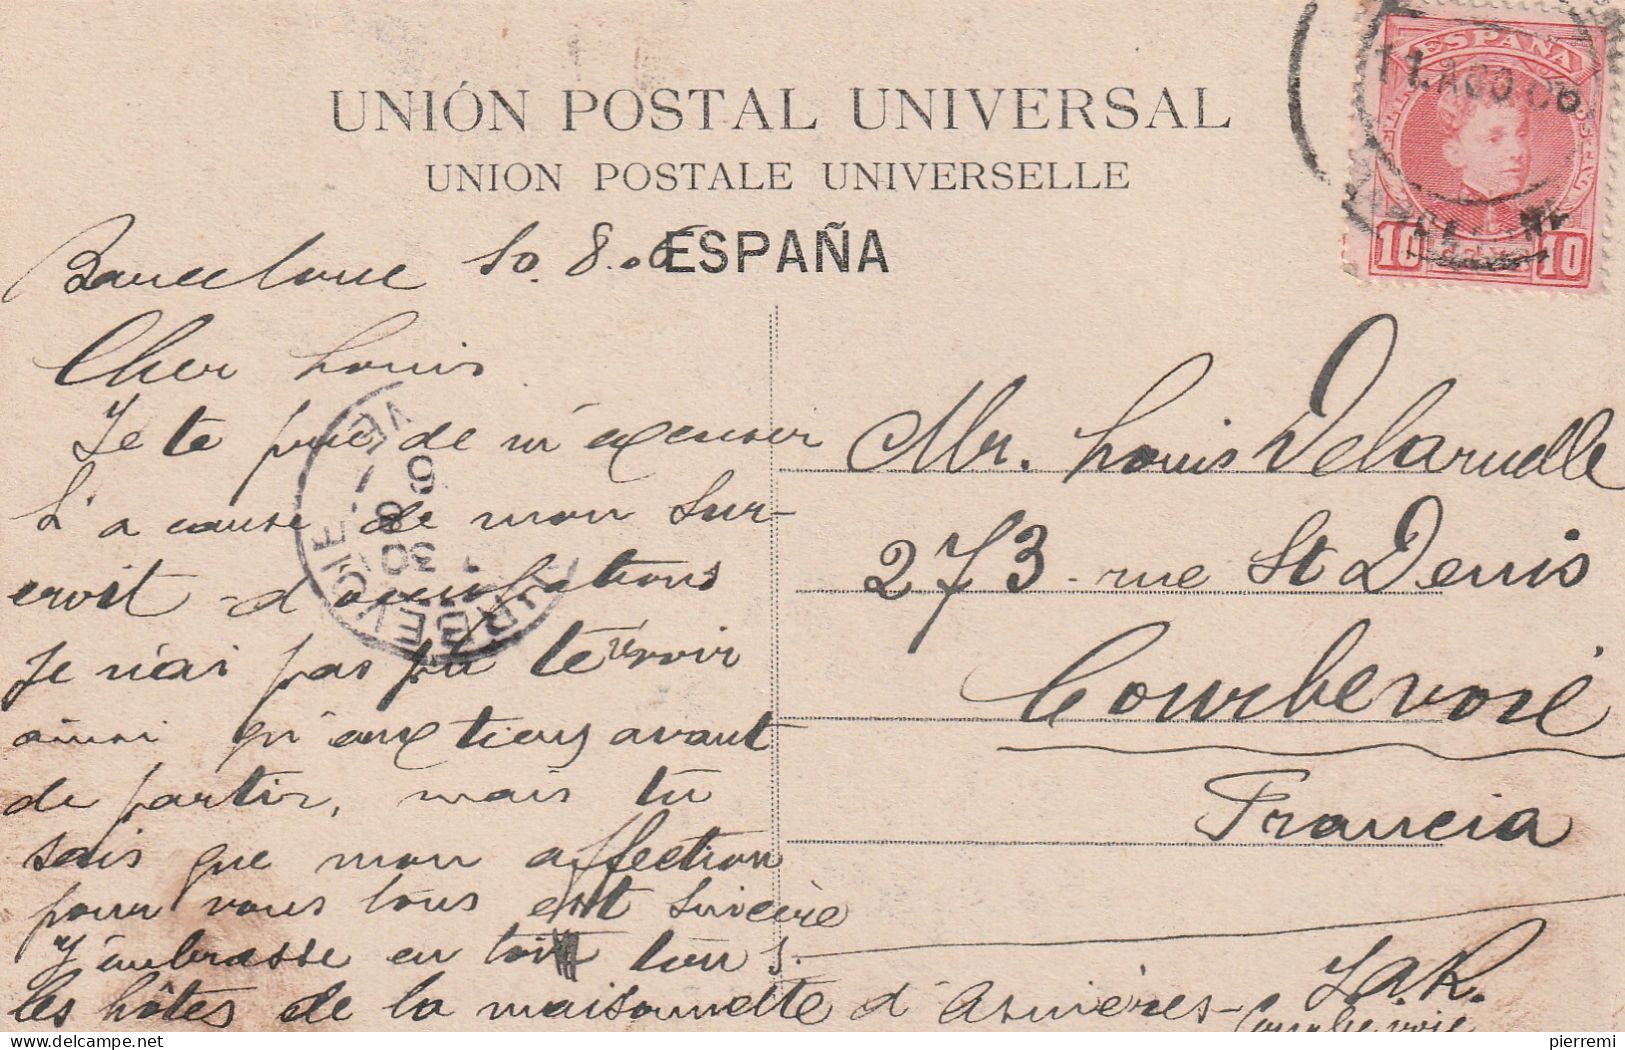 UNIÓN POSTAL UNIVERSAL
UNION POSTALE UNIVERSELLE
ESPAÑA
ESPAÑA
11.AGO 06
10 10
Barcelone 10.8.06
Cher Louis
Je te prie de m'excuser
S'a cause de mon sur-
croit d'occupations
je n'ai pas pu te revoir
ainsi qu'aux tiens avant
de partir, mais tu
sais que mon affection
pour vous tous est sincère
J'embrasse en toi tous
les hôtes de la maisonnette d'Asnières-
Courbevoie
J.A.R.
Mr. Louis Delaruelle
273 - rue St Denis
Courbevoie
Francia
COURBEVOIE
delcampe.net
pierremi